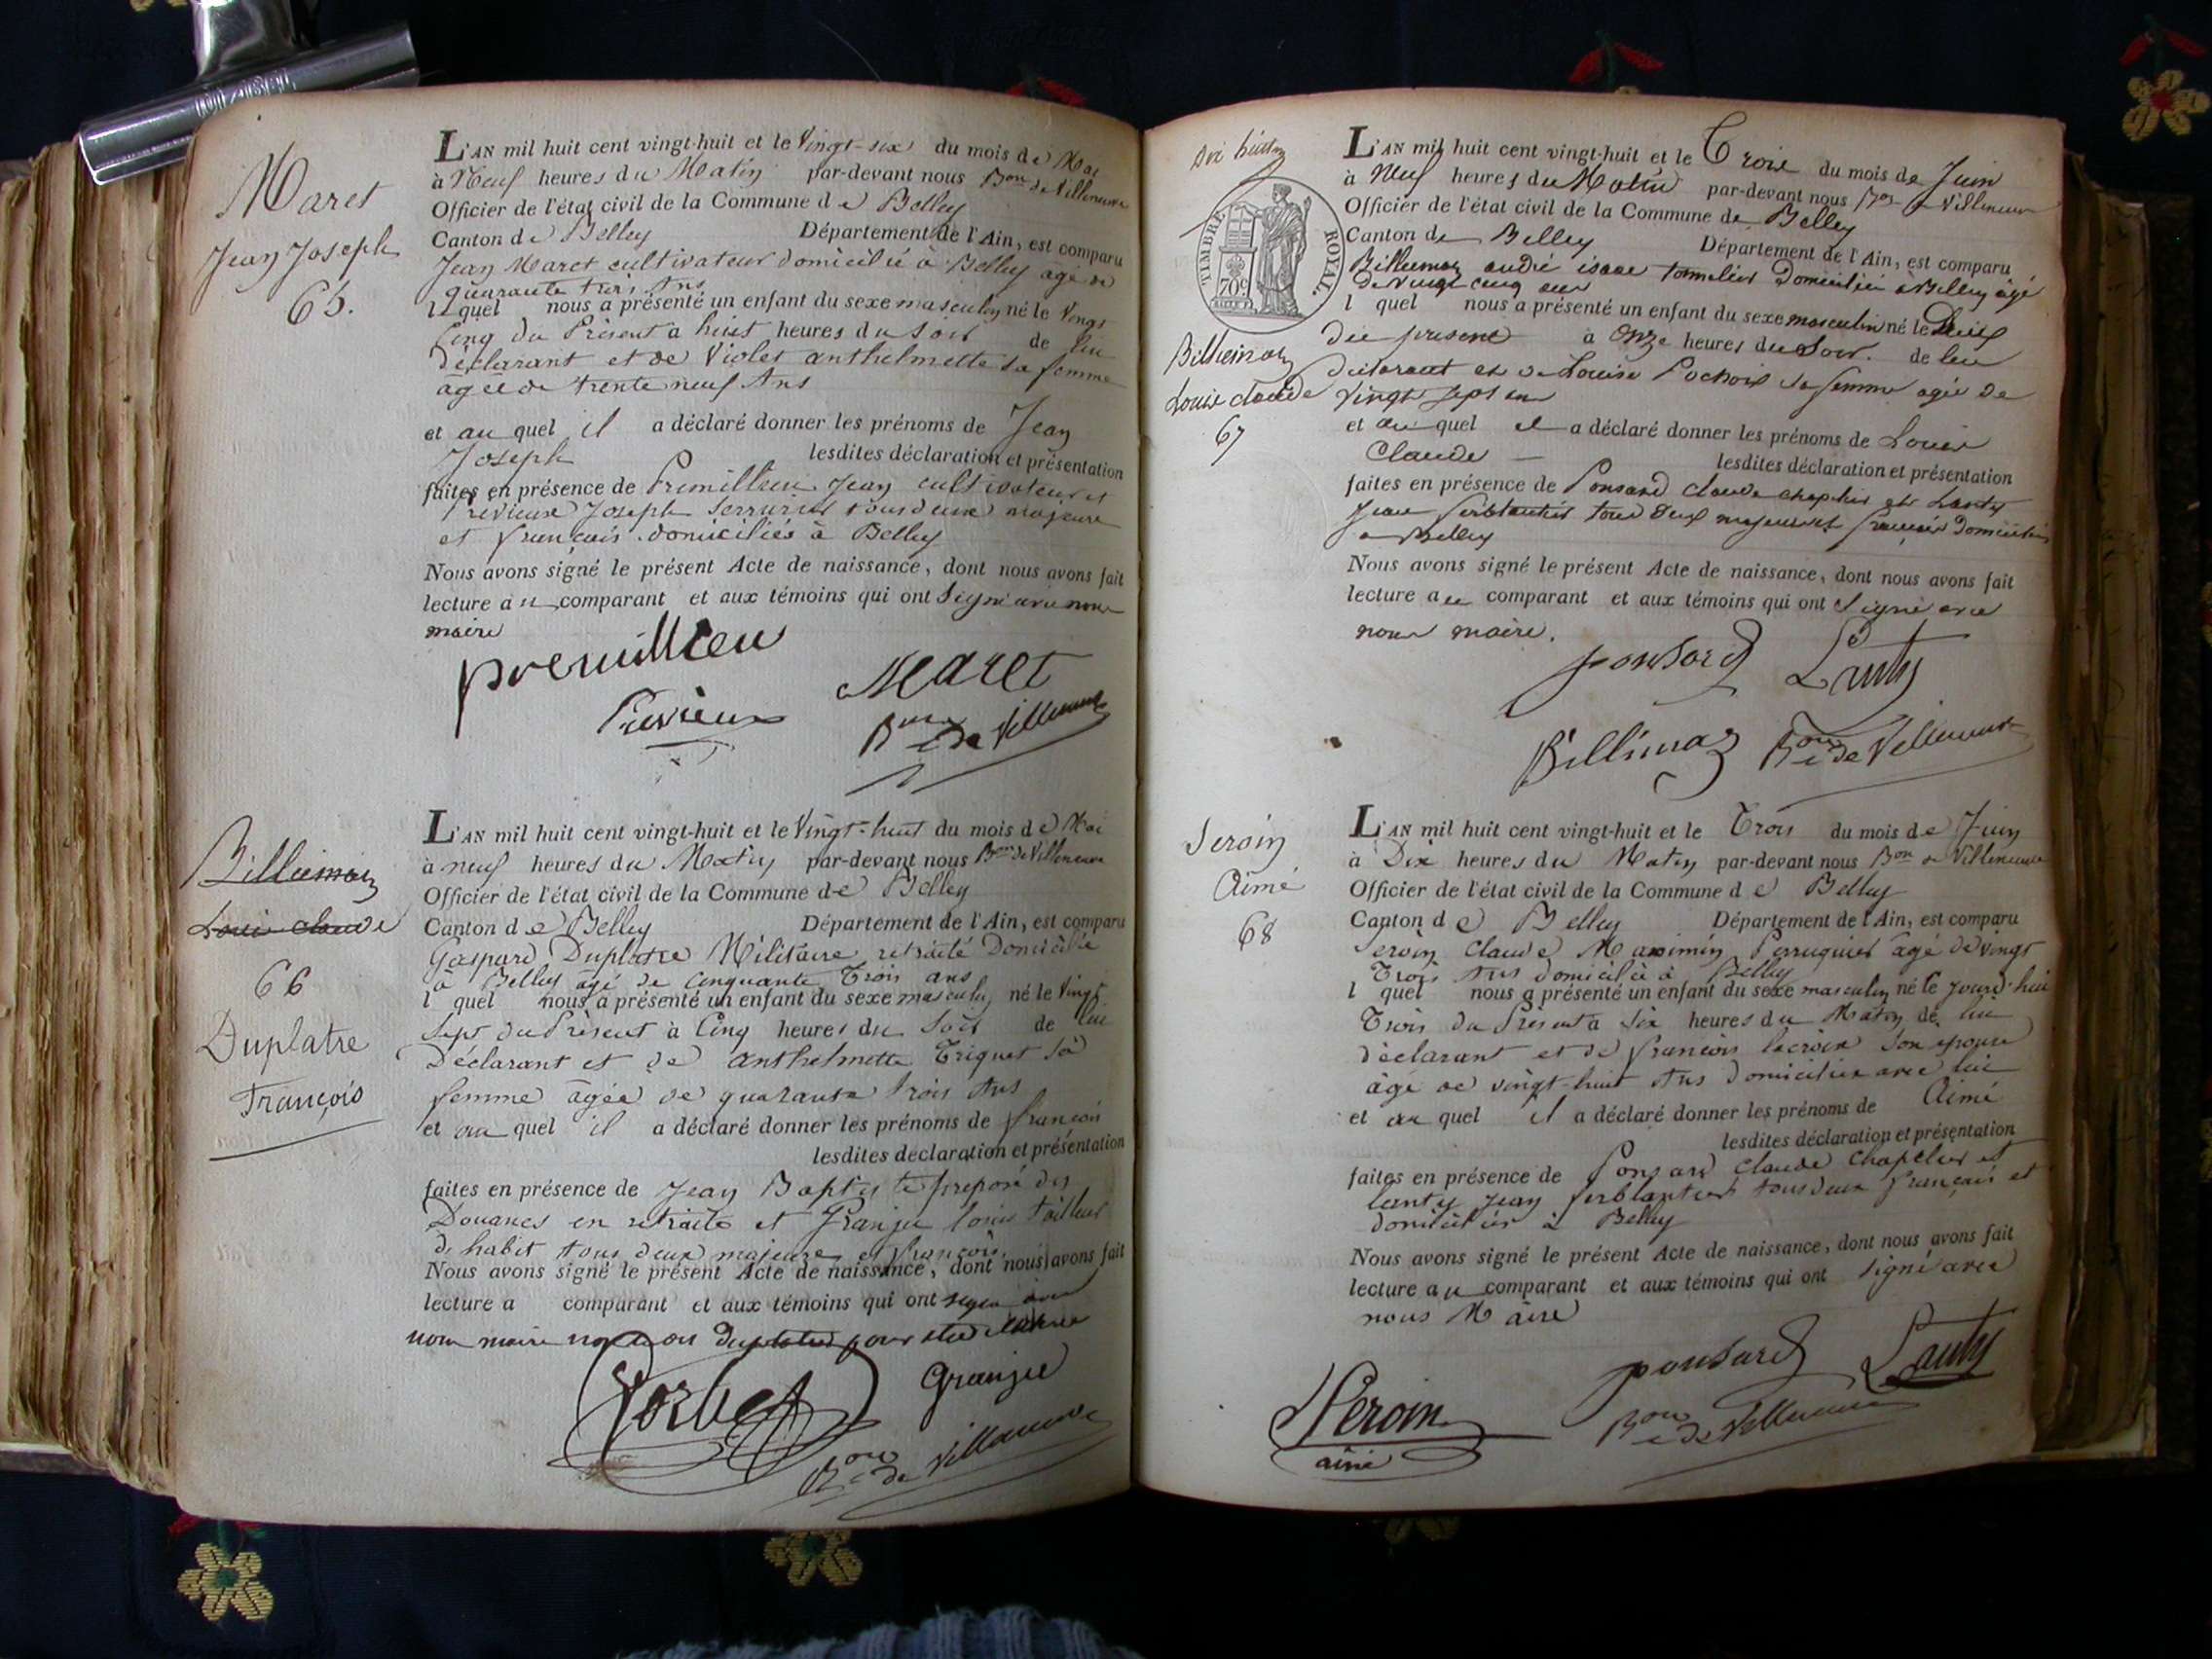 Maret
Jean Joseph
65.
L'AN mil huit cent vingt-huit et le Vingt-six du mois de Mai
à Neuf heures du Matin par-devant nous Bon de Villeneuve
Officier de l'état civil de la Commune de Belley
Canton de Belley Département de l'Ain, est comparu
Jean Maret cultivateur domicilié à Belley agé de
quarante trois Ans
lequel nous a présenté un enfant du sexe masculin né le Vingt
Cinq du Présent à huit heures du Soir de lui
déclarant et de Violet anthelmette sa femme
âgée de trente neuf Ans
et au quel il a déclaré donner les prénoms de Jean
Joseph lesdites déclaration et présentation
faites en présence de Premillieu Jean cultivateur et
Prévieux Joseph Serrurier tous deux majeurs
et français domiciliés à Belley
Nous avons signé le présent Acte de naissance, dont nous avons fait
lecture au comparant et aux témoins qui ont Signé avec nous
maire
premillieu
Maret
Prévieux
Bon de Villeneuve
Billiemaz
Louis Claude
66
Duplatre
François
L'AN mil huit cent vingt-huit et le Vingt-huit du mois de Mai
à neuf heures du Matin par-devant nous Bon de Villeneuve
Officier de l'état civil de la Commune de Belley
Canton de Belley Département de l'Ain, est comparu
Gaspard Duplatre Militaire retraité Domicilié
à Belley âgé de Cinquante Trois ans
l quel nous a présenté un enfant du sexe masculin né le Vingt
Sept du Présent à Cinq heures du Soir de lui
Déclarant et de anthelmette Triquet sa
femme âgée de quarante trois Ans
et au quel il a déclaré donner les prénoms de françois
lesdites déclaration et présentation
faites en présence de Jean Baptiste préposé des
Douanes en retraite et Granju louis tailleur
d'habit tous deux majeures et françois
Nous avons signé le présent Acte de naissance, dont nous avons fait
lecture a comparant et aux témoins qui ont signé avec
nous maire non Duplatre pour
Granju
Bon de Villeneuve
TIMBRE ROYAL.
70c
Billiemaz
Louis claude
67
L'AN mil huit cent vingt-huit et le Trois du mois de Juin
à Neuf heures du Matin par-devant nous Bon de Villeneuve
Officier de l'état civil de la Commune de Belley
Canton de Belley Département de l'Ain, est comparu
Billiemaz andré isaac tonnelier Domicilié à Belley âgé
de Vingt cinq ans
l quel nous a présenté un enfant du sexe masculin né le Deux
du présent à Onze heures du Soir. de lui
déclarant et de Louise Pochoir sa femme agée de
vingt sept ans
et au quel il a déclaré donner les prénoms de Louis
Claude lesdites déclaration et présentation
faites en présence de Ponsard claude chapelier et Lanty
Jean ferblantier tous deux majeurs et français Domiciliés
a Belley
Nous avons signé le présent Acte de naissance, dont nous avons fait
lecture au comparant et aux témoins qui ont Signé avec
nous maire.
ponsard Lanty
Billimaz Bon de Villeneuve
Seroin
Aimé
68
L'AN mil huit cent vingt-huit et le Trois du mois de Juin
à Dix heures du Matin par-devant nous Bon de Villeneuve
Officier de l'état civil de la Commune de Belley
Canton de Belley Département de l'Ain, est comparu
Seroin Claude Maximin Perruquier âgé de vingt
Trois Ans domicilié à Belley
l quel nous a présenté un enfant du sexe masculin né le jourd'hui
Trois du Présent à Six heures du Matin de lui
déclarant et de françois lacroix son epouse
âgé de vingt-huit Ans Domiciliée avec lui
et au quel il a déclaré donner les prénoms de Aimé
lesdites déclaration et présentation
faites en présence de Ponsard Claude Chapelier et
lanty Jean ferblantier tous deux français et
domiciliés à Belley
Nous avons signé le présent Acte de naissance, dont nous avons fait
lecture au comparant et aux témoins qui ont Signé avec
nous Maire
ponsard Lanty
Seroin
ainé
Bon de Villeneuve